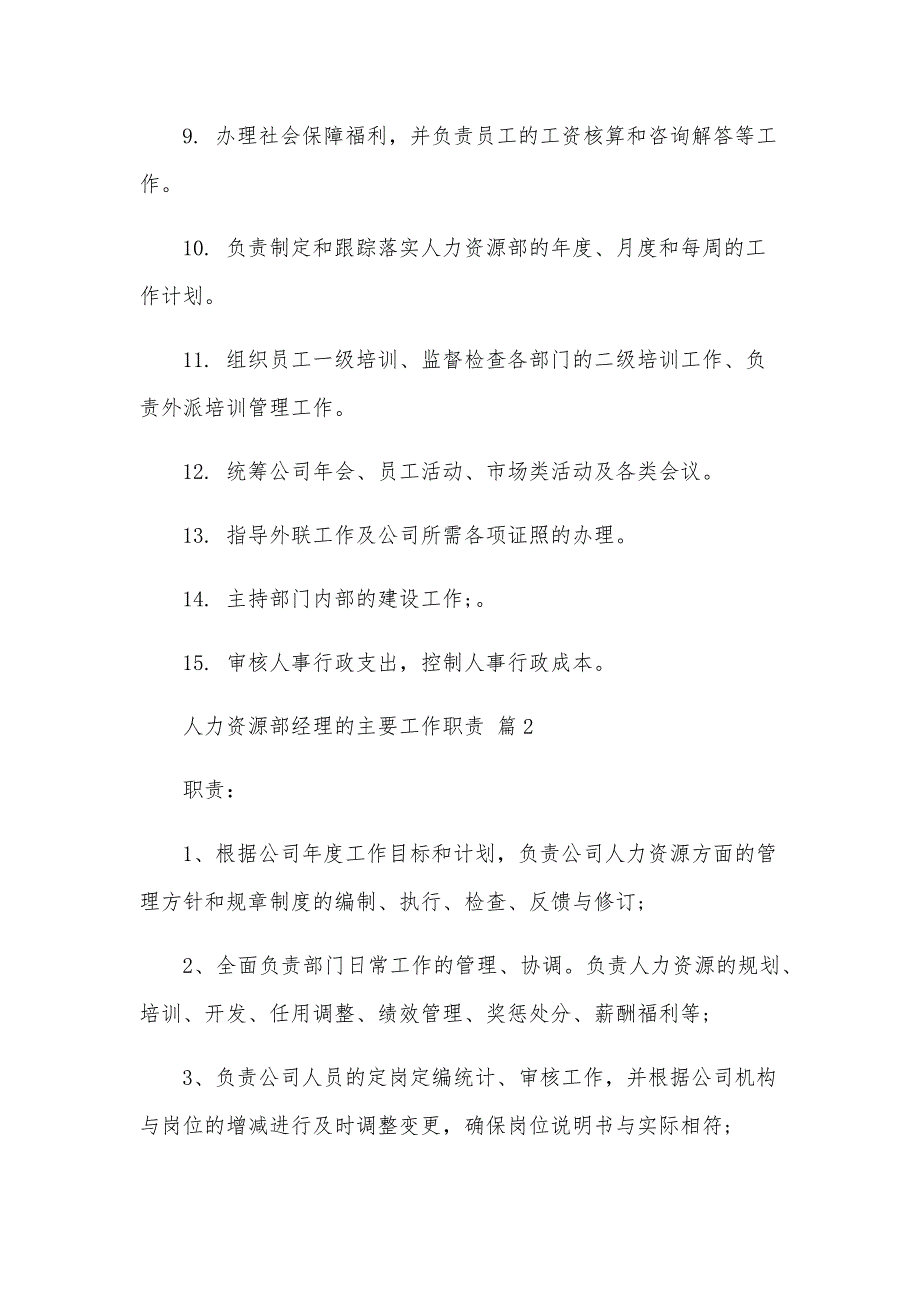 9. 办理社会保障福利，并负责员工的工资核算和咨询解答等工
作。
10. 负责制定和跟踪落实人力资源部的年度、月度和每周的工
作计划。
11. 组织员工一级培训、监督检查各部门的二级培训工作、负
责外派培训管理工作。
12. 统筹公司年会、员工活动、市场类活动及各类会议。
13. 指导外联工作及公司所需各项证照的办理。
14. 主持部门内部的建设工作;。
15. 审核人事行政支出，控制人事行政成本。
人力资源部经理的主要工作职责 篇2
职责：
1、根据公司年度工作目标和计划，负责公司人力资源方面的管
理方针和规章制度的编制、执行、检查、反馈与修订;
2、全面负责部门日常工作的管理、协调。负责人力资源的规划、
培训、开发、任用调整、绩效管理、奖惩处分、薪酬福利等;
3、负责公司人员的定岗定编统计、审核工作，并根据公司机构
与岗位的增减进行及时调整变更，确保岗位说明书与实际相符;